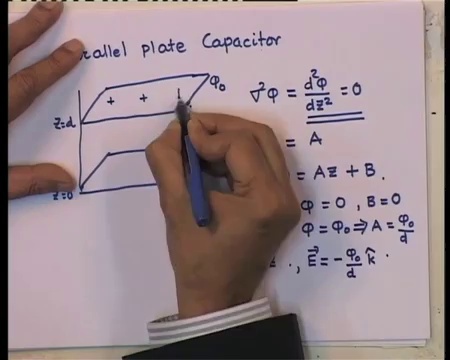 Parallel plate Capacitor
+ + φ₀
z=d
z=0
∇²φ = d²φ/dz² = 0
= A
= Az + B.
φ = 0, B = 0
φ = φ₀ ⇒ A = φ₀/d
z., E⃗ = -φ₀/d k̂.